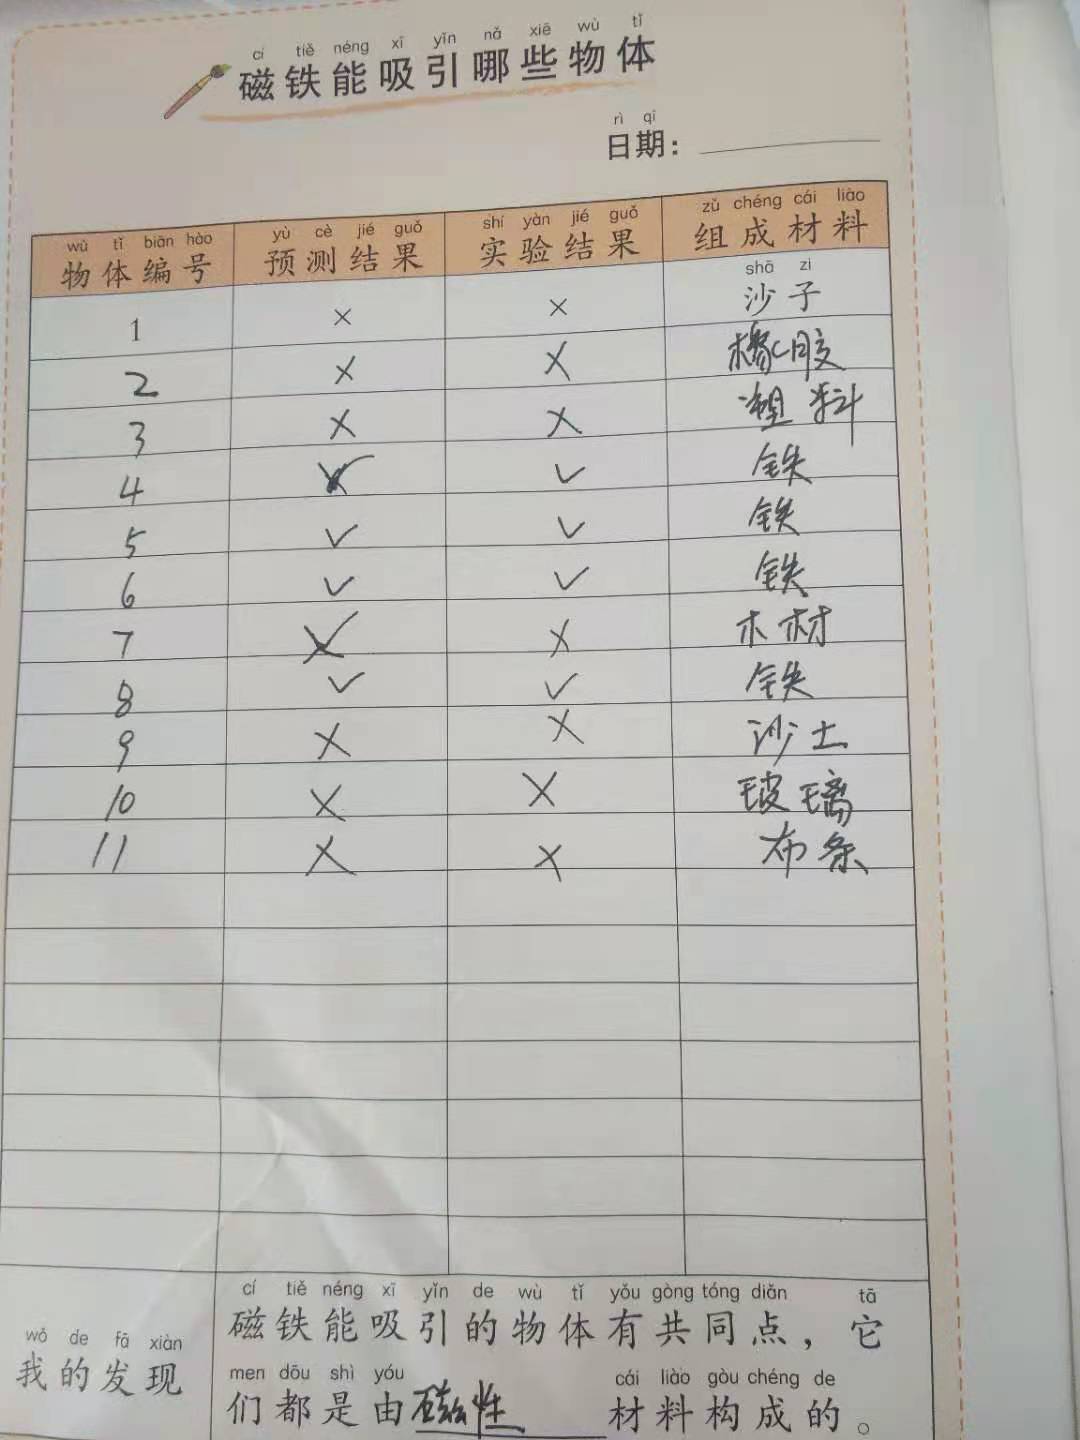 cí tiě néng xī yǐn nǎ xiē wù tǐ
磁铁能吸引哪些物体
rì qī
日期：
wù tǐ biān hào yù cè jié guǒ shí yàn jié guǒ zǔ chéng cái liào
物体编号 预测结果 实验结果 组成材料
shā zi
1 × × 沙子
2 × × 橡胶
3 × × 塑料
4 ✓ 铁
5 ✓ ✓ 铁
6 ✓ ✓ 铁
7 × × 木材
8 ✓ ✓ 铁
9 × × 沙土
10 × × 玻璃
11 × × 布条
cí tiě néng xī yǐn de wù tǐ yǒu gòng tóng diǎn tā
磁铁能吸引的物体有共同点，它
wǒ de fā xiàn
我的发现
men dōu shì yóu cái liào gòu chéng de
们都是由磁性材料构成的。